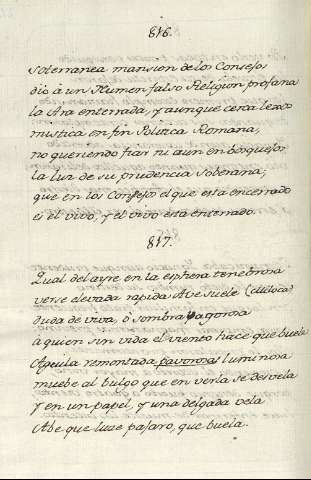 816.
Soterranea mansion de los Consejos
dio à un Numen falso Religion profana
la Ara enterrada, y aunque cerca lexos
mistica en fin Politica Romana,
no queriendo fiar ni aun en bosquejos
la luz de su prudencia Soberana,
que en los Consejos el que esta encerrado
es el vivo, y el vivo esta enterrado.
817.
Qual del ayre en la esphera tenebrosa
verse elevada rapida Ave suele
duda de viva, ò sombra pagorosa
à quien sin vida el viento hace que buele
Aguila remontada pavorosa luminosa
muebe al bulgo que en verla se desvela
y en un papel, y una delgada vela
Abe que luze pajaro, que buela.